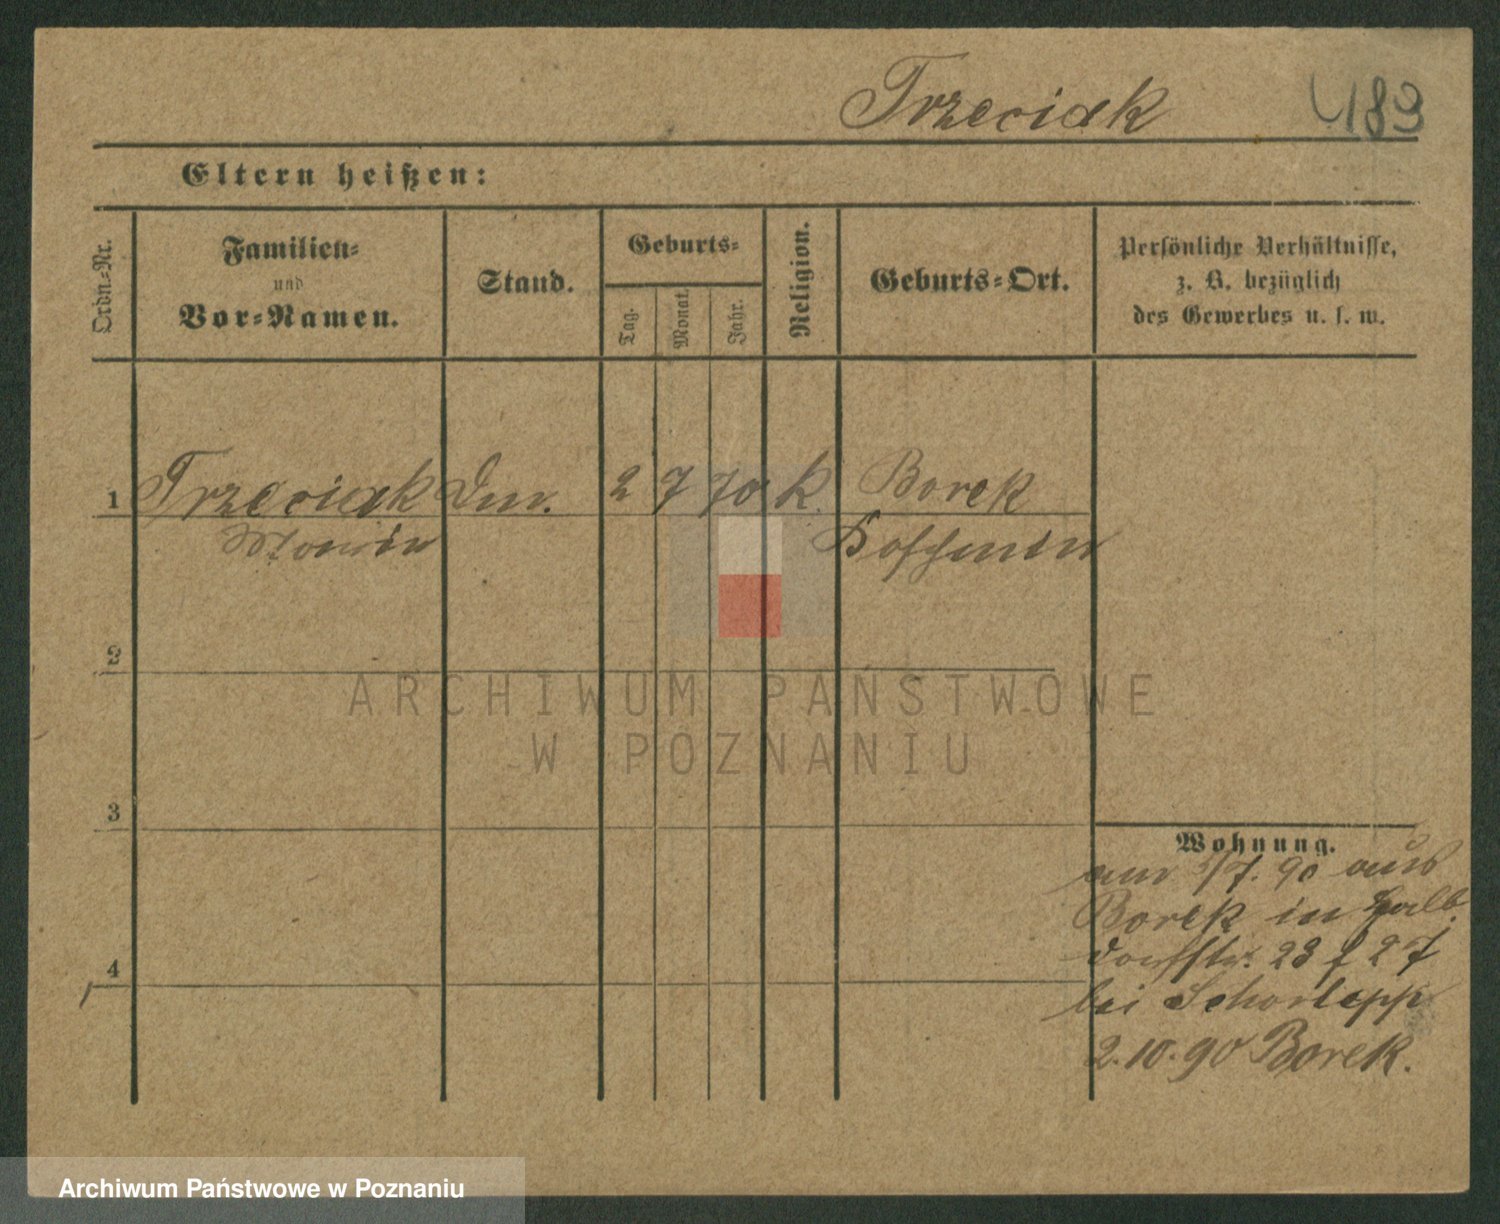 Trzeciak 483
Eltern heißen:
Ordn.-Nr.
Familien-
und
Vor-Namen.
Stand.
Geburts-
Tag.
Monat.
Jahr.
Religion.
Geburts-Ort.
Persönliche Verhältnisse,
z. B. bezüglich
des Gewerbes u. s. w.
1 Trzeciak 2 7 70 k. Borek
2
ARCHIWUM PAŃSTWOWE
W POZNANIU
3
Wohnung.
am 5/7. 90 aus
Borek in Halb
dorfstr. 23 f 27
4
bei Schorlepp
2.10.90 Borek.
Archiwum Państwowe w Poznaniu